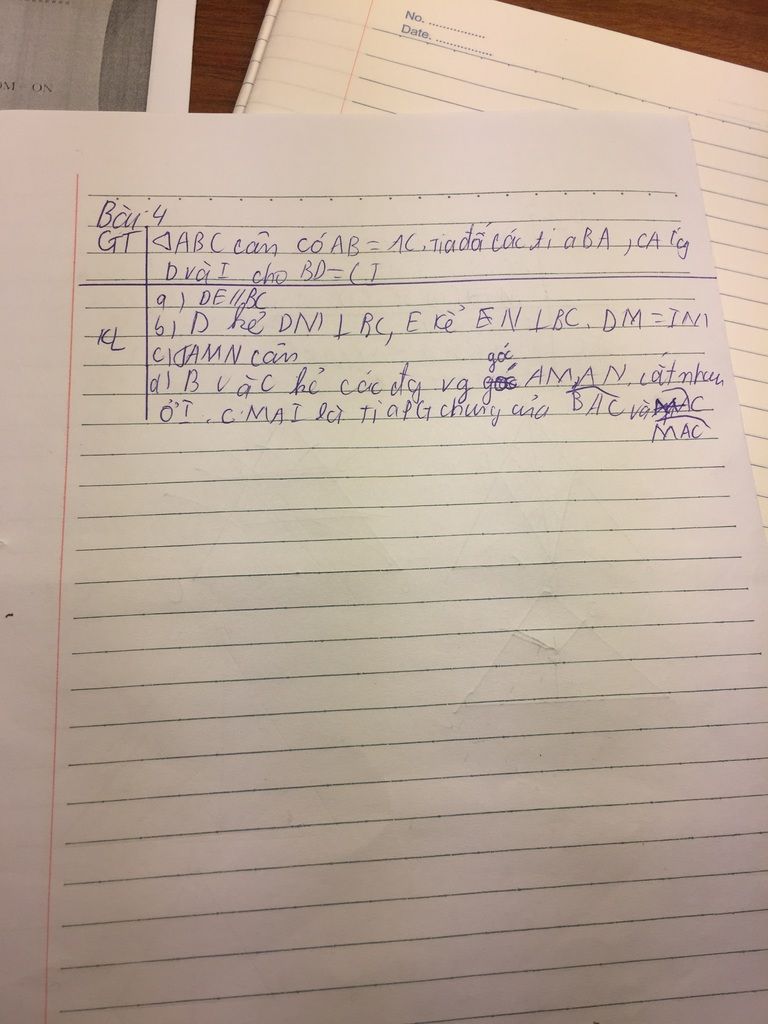 OM - ON
No. ..................
Date. ..................
Bài 4
GT ABC cân có AB = AC. Tia đối các ti a BA, CA
D và I cho BD = CI
a) DE // BC
KL b) D kẻ DM ⊥ BC, E kẻ EN ⊥ BC. DM = IN
c) AMN cân
góc
d) B và C kẻ các đg vg AM, AN cắt nhau
ở I. C.M AI là Ti a PG chung của BAC và
MAC